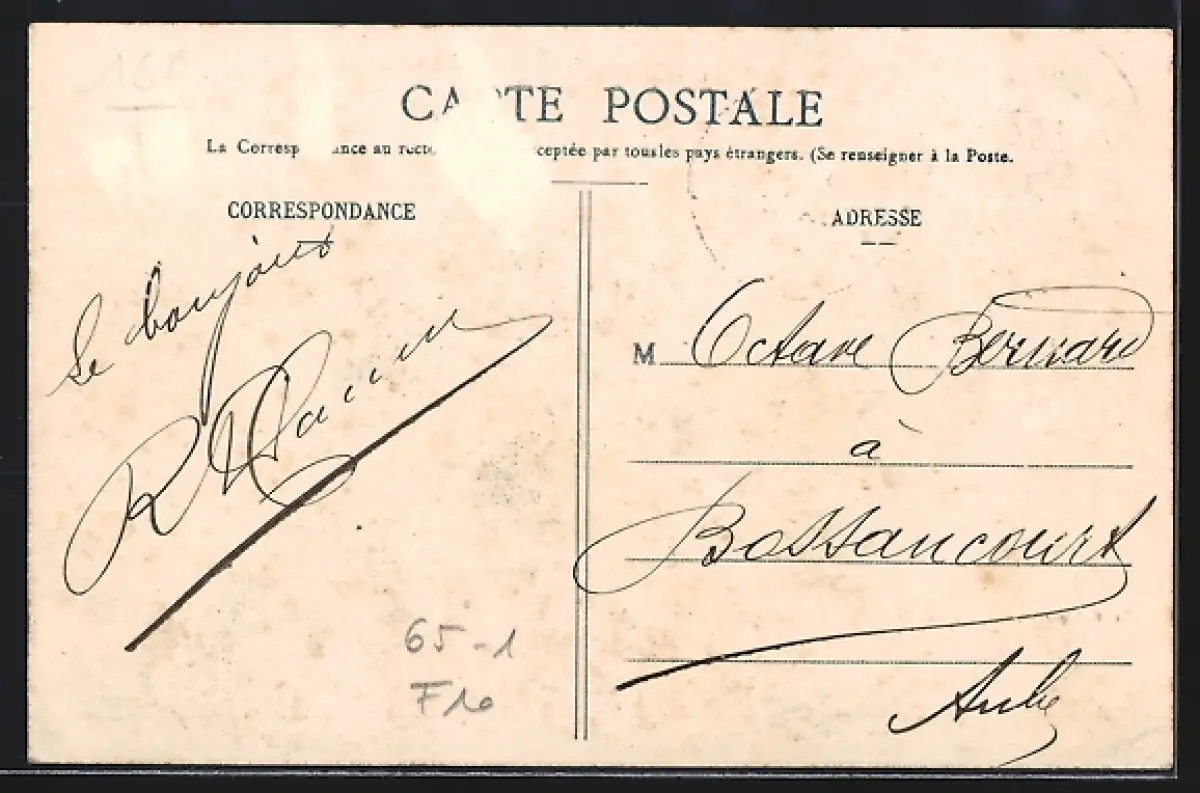 CARTE POSTALE
La Correspondance au recto ceptée par tous les pays étrangers. (Se renseigner à la Poste.
CORRESPONDANCE
Le bonjour
65-1
F10
ADRESSE
M Octave Bernard
à
Bossancourt
Aube